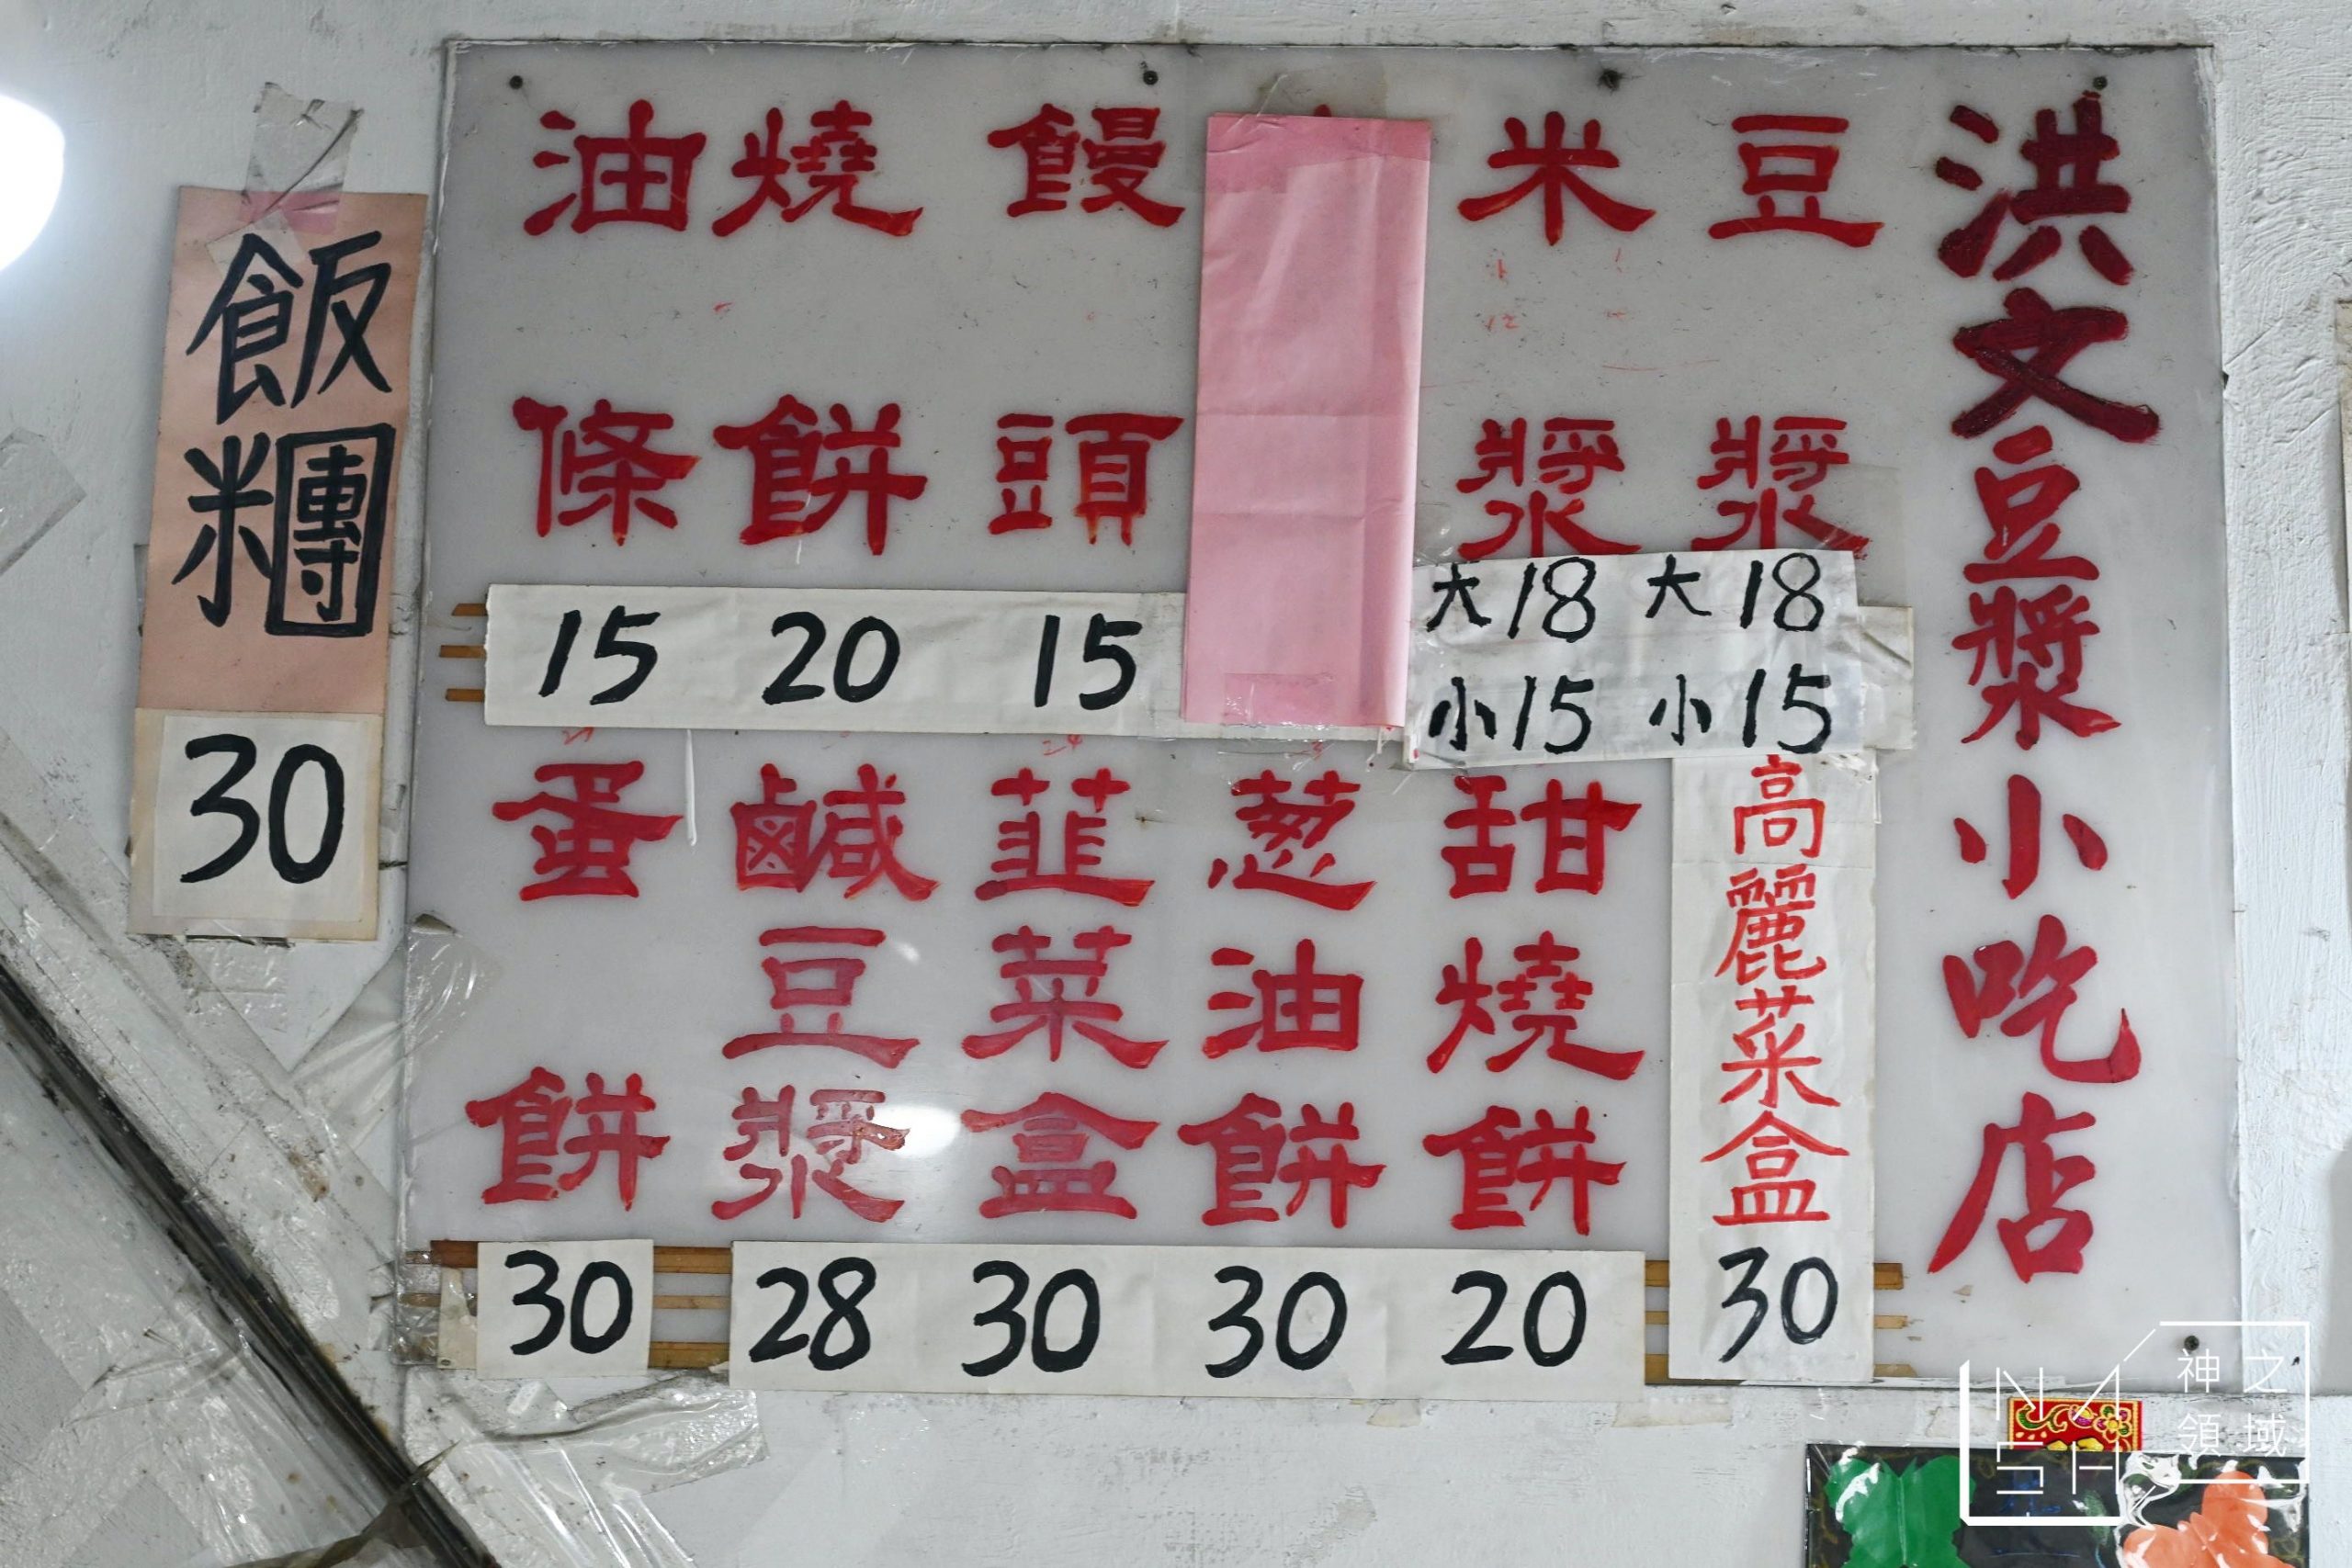 洪文豆漿小吃店
豆漿
大18
小15
米漿
大18
小15
饅頭
15
燒餅
20
油條
15
高麗菜盒
30
甜燒餅
20
葱油餅
30
韮菜盒
30
鹹豆漿
28
蛋餅
30
飯糰
30
神之領域